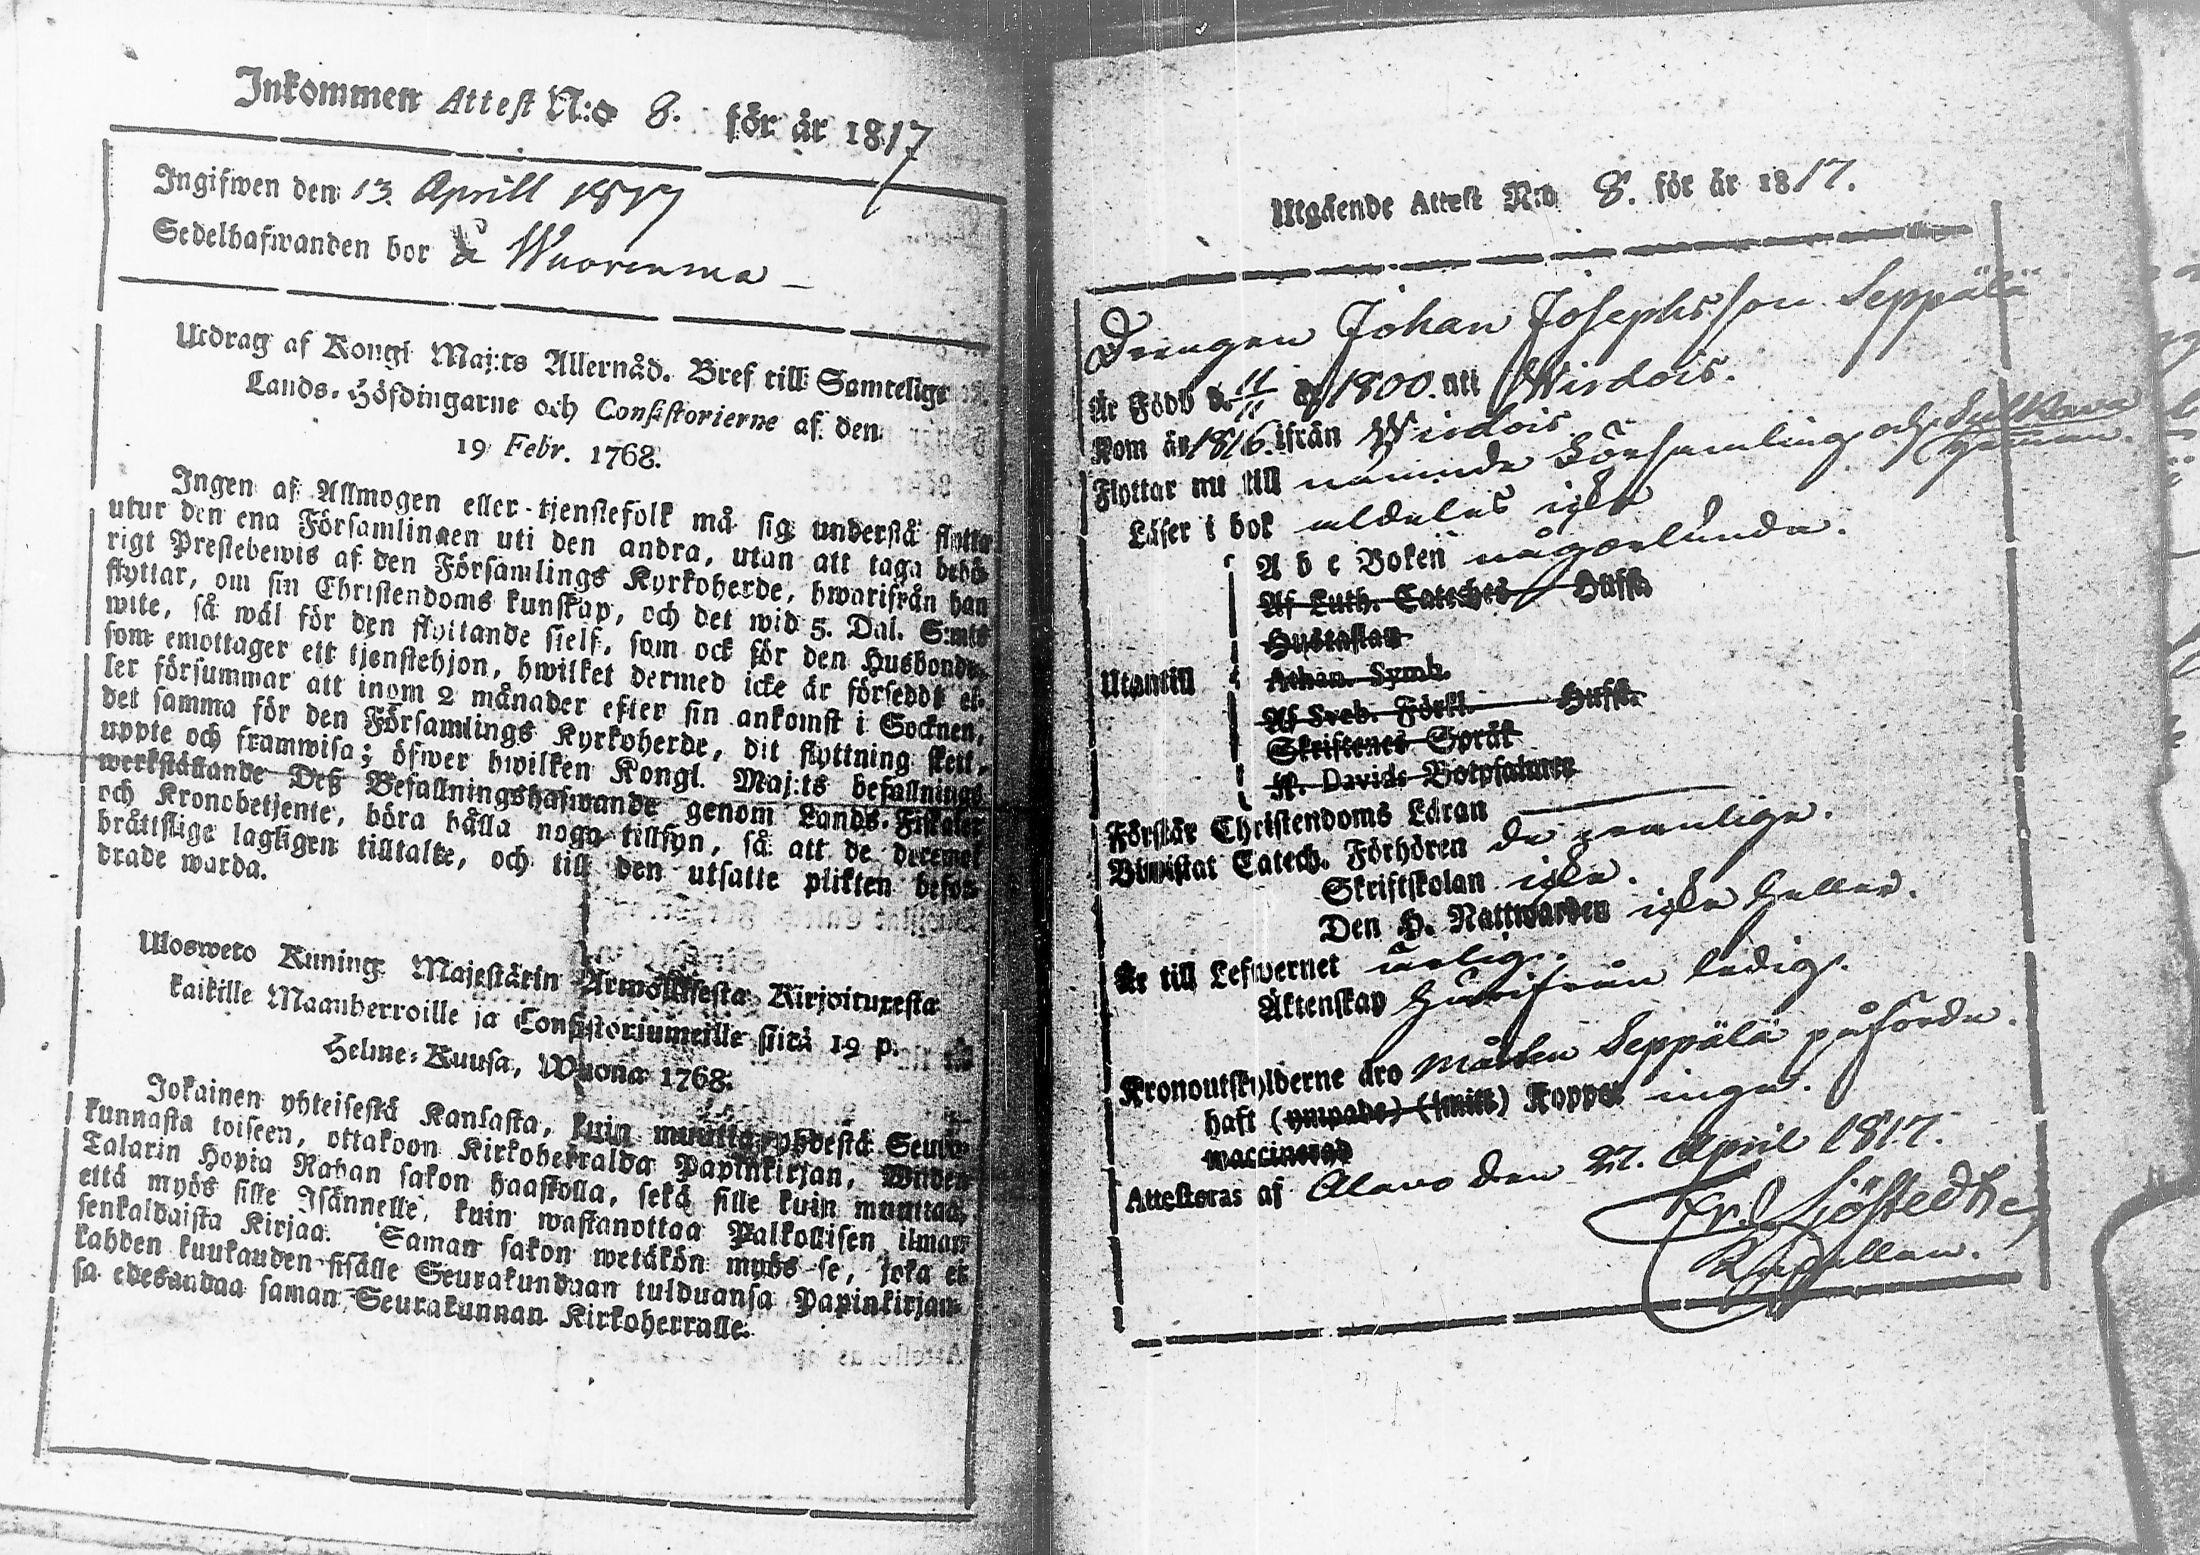 Inkommen Attest N:o 8. för år 1817
Ingifwen den 13. Aprill 1817
Sedelhafwanden bor Wuorenma
Utdrag af Kongl Maj:ts Allernåd. Bref till Samtelige
Lands-Höfdingarne och Consistorierne af den
19 Febr. 1768.
Ingen af Allmogen eller tjenstefolk må sig understå flytta
utur den ena Församlingen uti den andra, utan att taga behö-
rigt Prestebewis af den Församlings Kyrkoherde, hwarifrån han
flyttar, om sin Christendoms kunskap, och det wid 5. Dal. S:mts
wite, så wäl för den flyttande sielf, som ock för den Husbonde,
som emottager ett tjenstehjon, hwilket dermed icke är försedt el-
ler försummar att inom 2 månader efter sin ankomst i Socknen,
det samma för den Församlings Kyrkoherde, dit flyttning skett,
uppte och framwisa; öfwer hwilken Kongl. Maj:ts befallnings
werkställande Deß Befallningshafwande genom Lands-Fiskaler
och Kronobetjente, böra hålla noga tillsyn, så att de deremot
bråttslige lagligen tilltalte, och till den utsatte plikten befor-
drade warda.
Ulosweto Kuning. Majestätin Armollisesta Kirjoituxesta
kaikille Maanherroille ja Consistoriumeille siitä 19 p.
Helme-Kuusa, Wuona 1768.
Jokainen yhteisestä Kansasta, kuin muutta yhdestä Seura-
kunnasta toiseen, ottakoon Kirkoherralda Papinkirjan, Wiiden
Talarin Hopia Rahan sakon haastolla, sekä sille kuin muuttaa,
että myös sille Isännelle, kuin wastanottaa Palkollisen ilman
senkaldaista Kirjaa. Saman sakon wetäkön myös se, joka ei
kahden kuukauden sisälle Seurakundaan tulduansa Papinkirjan-
sa edesandaa saman Seurakunnan Kirkoherralle.
Utgående Attest N:o 8. för år 1817.
Drengen Johan Josephsson Seppälä
Är Född d. 11/11 1800. att Wirdois.
Kom år 1816. ifrån Wirdois.
Flyttar nu till nämnde Församling och Sulkava
Läser i bok aldeles icke
A b c Boken någorlunda.
Af Luth. Cateches Hufst.
Hustaflan
Athan. Symb.
Utantill
Af Sveb. Förkl. Hufst.
Skriftenes Språk
K. Davids Botpsalmer
Förstår Christendoms Läran
Biwistat Catech. Förhören
Skriftskolan icke.
Den H. Nattwarden icke heller.
Är till Lefwernet ärlig.
Äktenskap härifrån ledig.
Kronoutskylderne äro Mårten Seppälä påförde.
haft (ympade) (smitt) Koppor inga.
waccinerad
Attesteras af Alavo den 27. April 1817.
Er. Sjöstedt